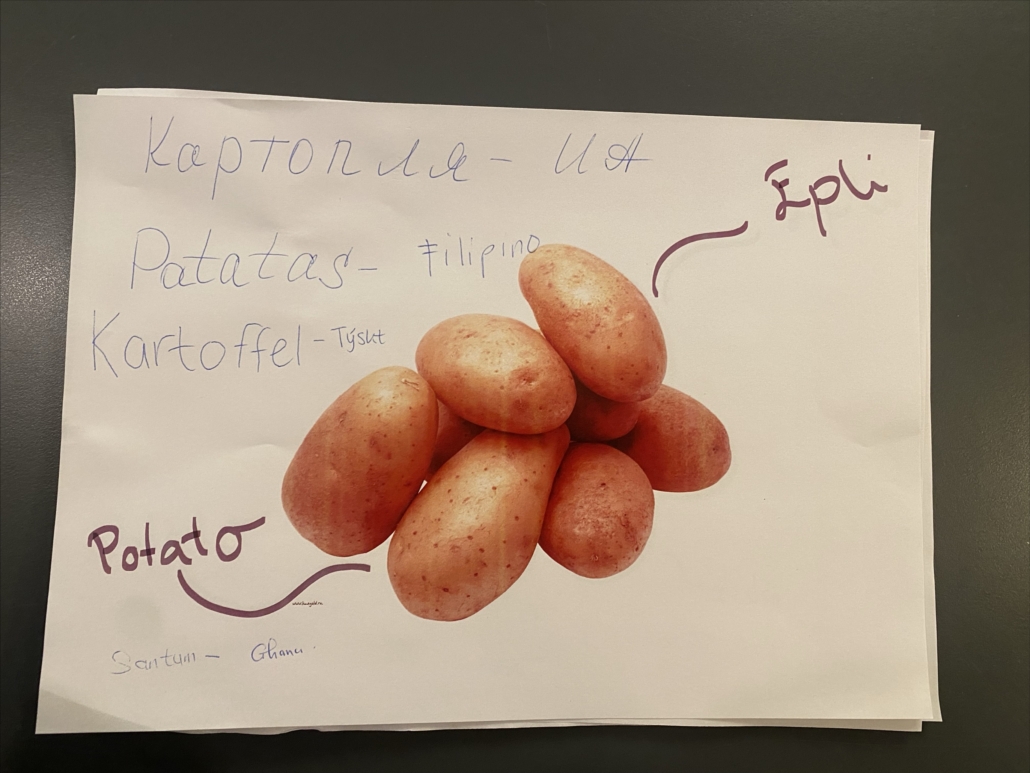 Картопля - UA
Epli
Patatas - Filipino
Kartoffel - Týskt
Potato
Santum - Ghana